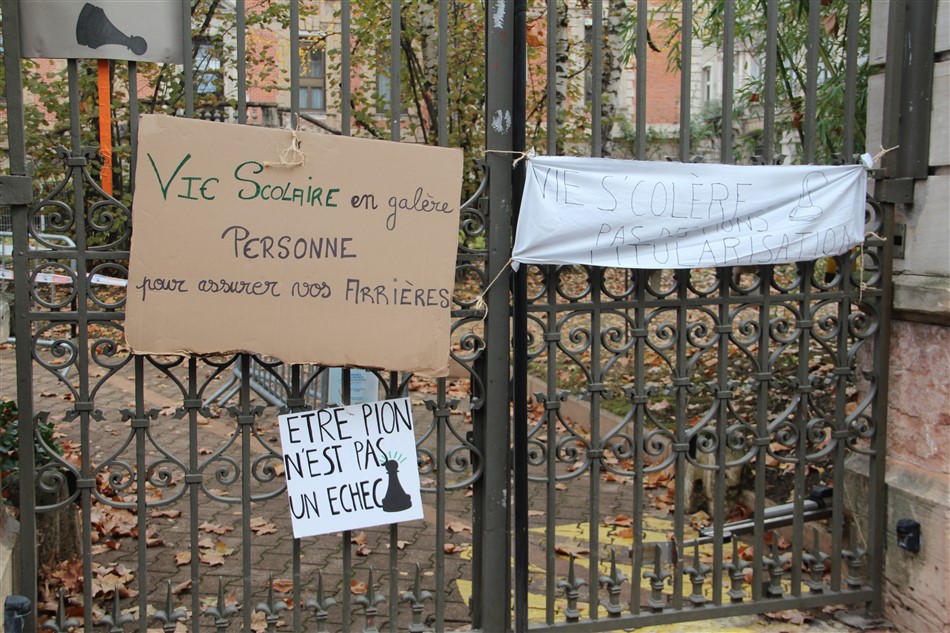 Vie Scolaire en galère
Personne
pour assurer vos Arrières
VIE S'COLÈRE
PAS DE PIONS
PAS DE SCOLARISATION
ETRE PION
N'EST PAS
UN ECHEC